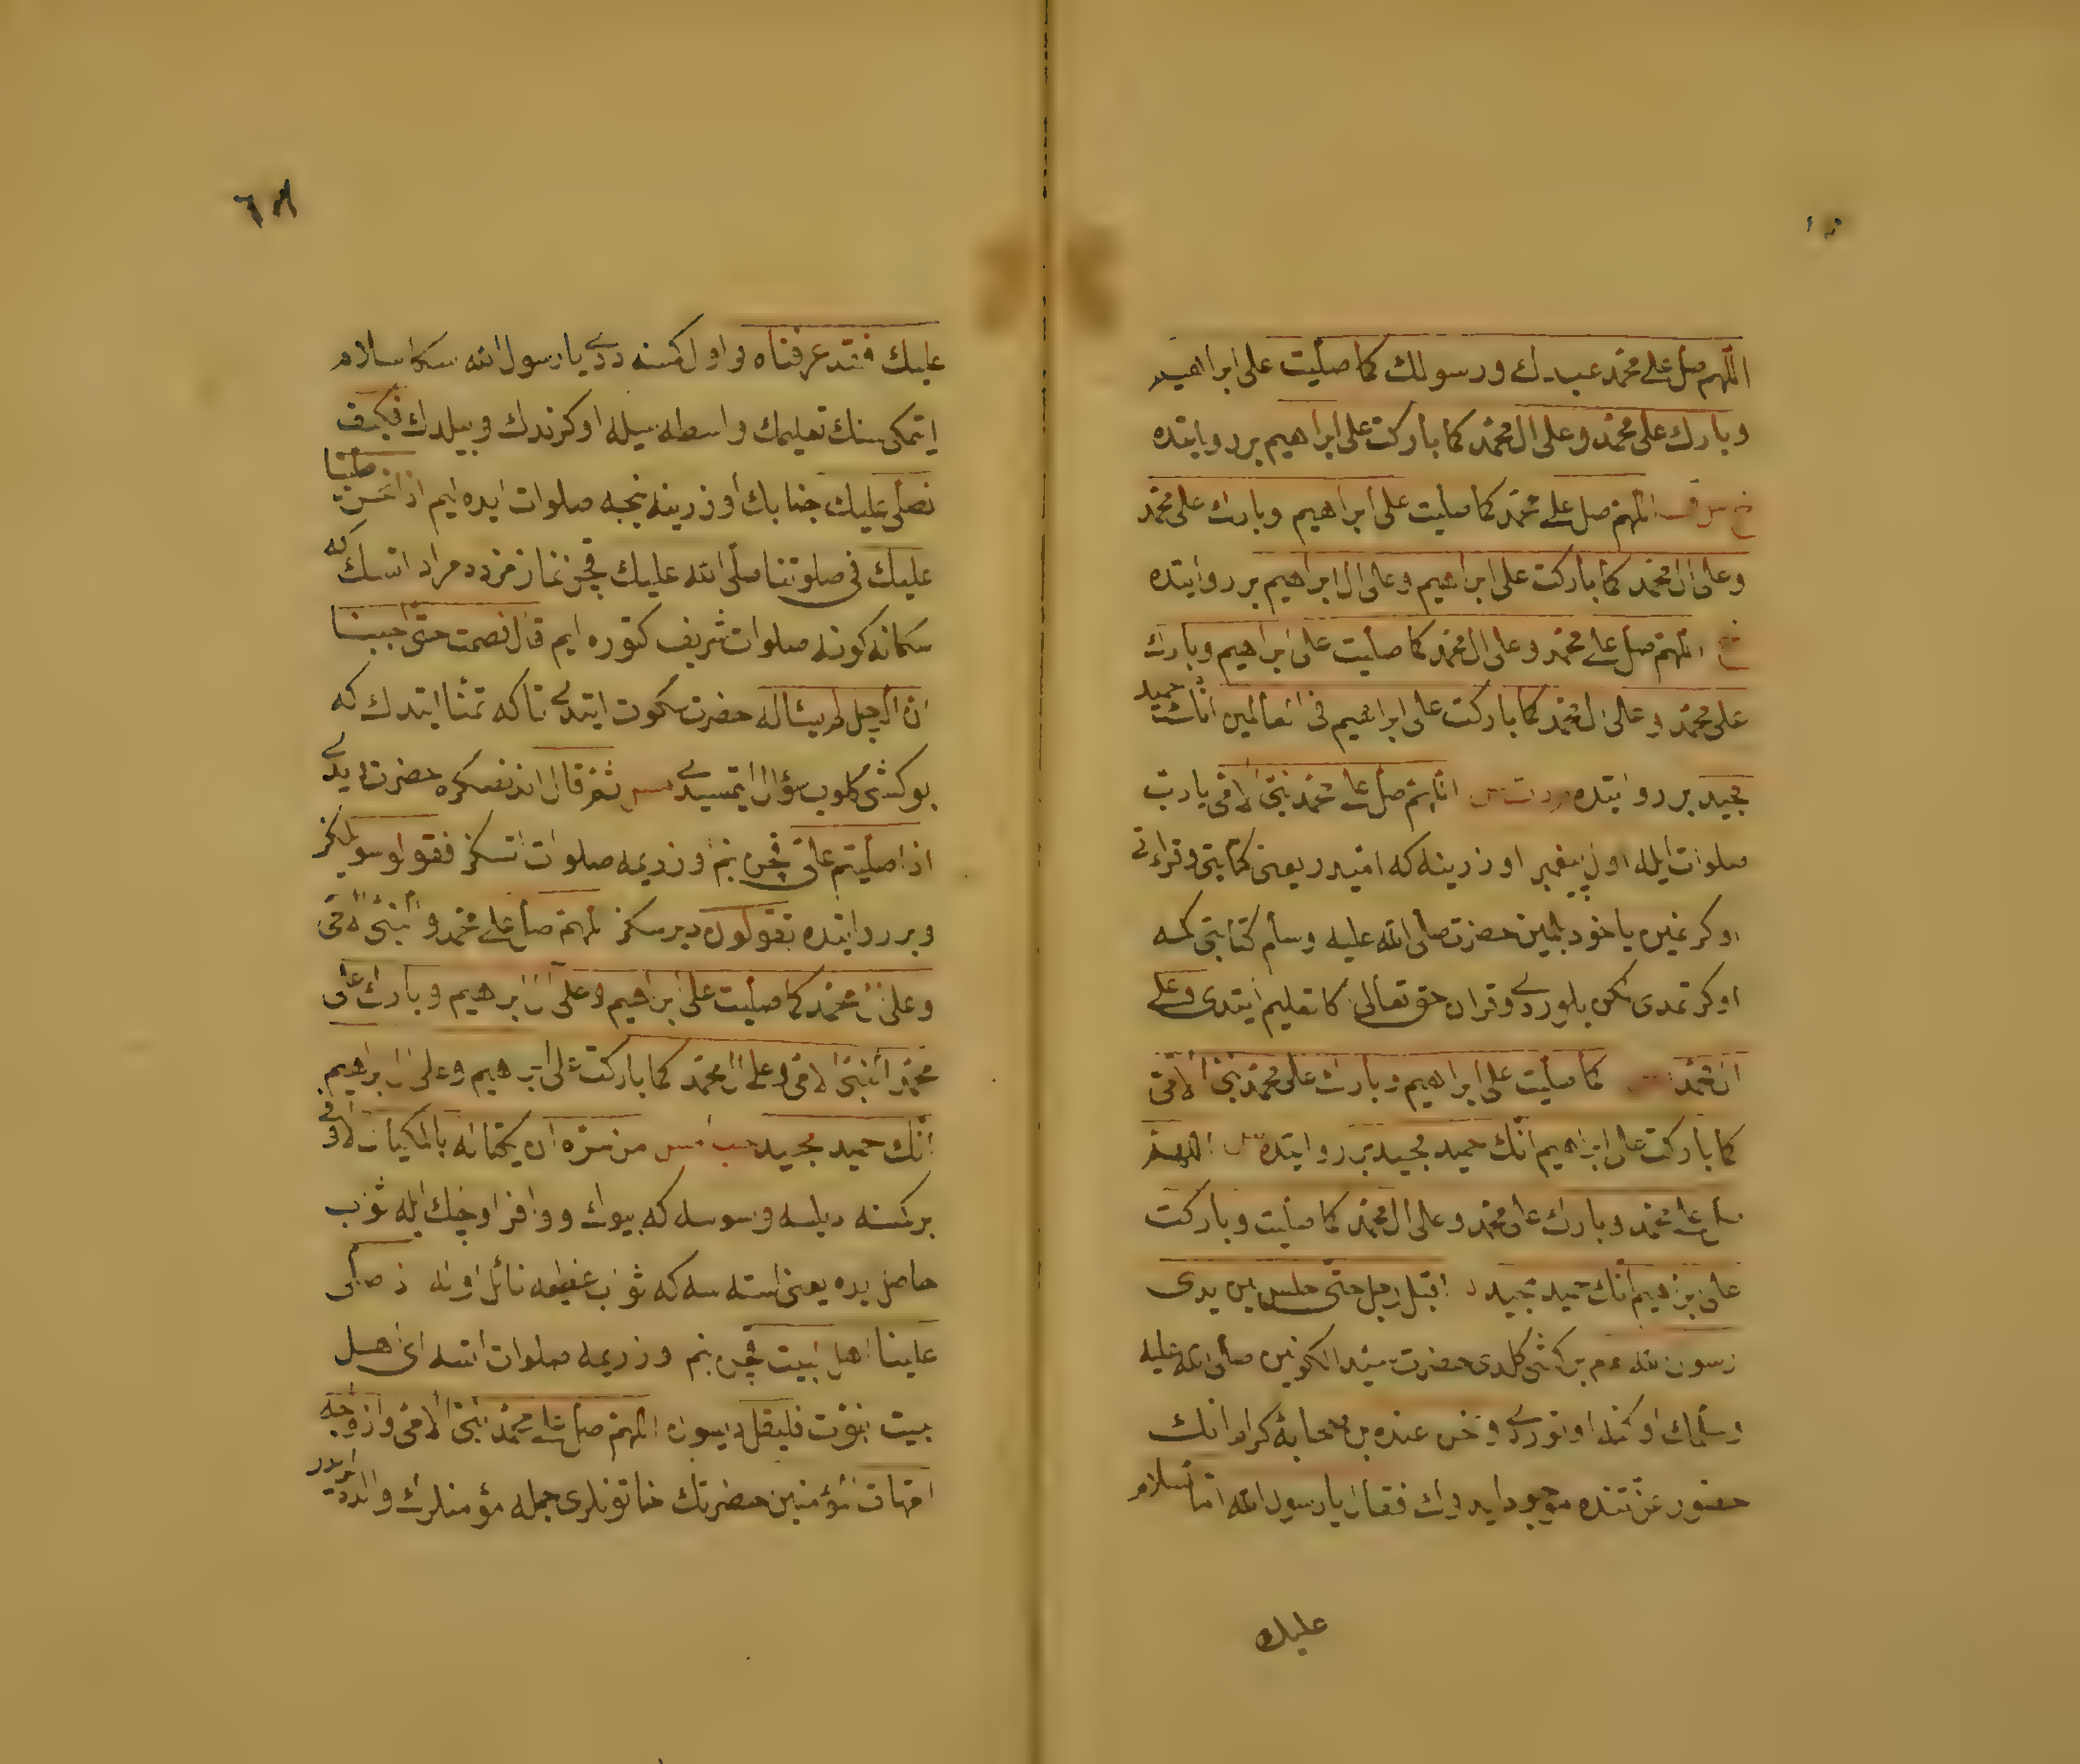 اللهم صل على محمد عبدك ورسولك كما صليت على ابراهيم
وبارك على محمد وعلى ال محمد كما باركت على ابراهيم بر روايتده
خ س ق اللهم صل على محمد كما صليت على ابراهيم وبارك على محمد
وعلى ال محمد كما باركت على ابراهيم وعلى ال ابراهيم بر روايتده
اللهم صل على محمد وعلى ال محمد كما صليت على ابراهيم وبارك
على محمد وعلى ال محمد كما باركت على ابراهيم فى العالمين انك حميد
مجيد بر روايتده اللهم صل على محمد النبى الامى يا رب
صلوات ايله اول پيغمبر اوزرينه كه اميدر يعنى كتابتى وقراءتى
اوكرنمين ياخود بلمين حضرت صلى الله عليه وسلم كتابتى كمسه
اوكرتمدى لكن بلوردى وقران حق تعالى اكا تعليم ايتدى وعلى
ال محمد كما صليت على ابراهيم وبارك على محمد النبى الامى
كما باركت على ابراهيم انك حميد مجيد بر روايتده اللهم
صل على محمد وبارك على محمد وعلى ال محمد كما صليت وباركت
على ابراهيم انك حميد مجيد اقبل رجل حتى جلس بين يدى
رسول الله عم بر كشى كلدى حضرت سيد الكونين صلى الله عليه
وسلمك اوكنده اوتوردى ونحن عنده بز صحابۀ كرام انك
حضور عزتنده موجود ايدوك فقال يا رسول الله اما السلام
عليك
٦٨
عليك فقد عرفناه واول كمسنه ددى يا رسول الله سكا سلام
ايتمكى سنك تعليمك واسطه سيله اوكرندك وبيلدك فكيف
نصلى عليك جنابك اوزرينه نيجه صلوات ايده ايم اذا نحن صلينا
عليك فى صلوتنا صلى الله عليك قچن نمازمزده مراد اتسك كه
سكا نه كونه صلوات شريف كتوره ايم قال فصمت حتى احببنا
ان الرجل لم يساله حضرت سكوت ايتدى تا كه تمنا ايتدك كه
بو كشى كلوب سؤال ايتمسيدى ثم قال اندنصكره حضرت ديدى
اذا صليتم على قچن بنم اوزريمه صلوات اتسكز فقولوا سويلكز
وبر روايتده تقولون ديرسكز اللهم صل على محمد النبى الامى
وعلى ال محمد كما صليت على ابراهيم وعلى ال ابراهيم وبارك على
محمد النبى الامى وعلى ال محمد كما باركت على ابراهيم وعلى ال ابراهيم
انك حميد مجيد من سره ان يكتال له بالمكيال الاوفى
بر كمسنه ديلسه وسوسه كه بيوك ووافر اوچلك ايله ثواب
حاصل ايده يعنى استسه كه ثواب عظيمه نائل اوله اذا صلى
علينا اهل البيت قچن بنم اوزريمه صلوات اتسه اى اهل
بيت نبوت فليقل ديسون اللهم صل على محمد النبى الامى وازواجه
امهات المؤمنين حضرتك خاتونلرى جمله مؤمنلرك والده لريدر